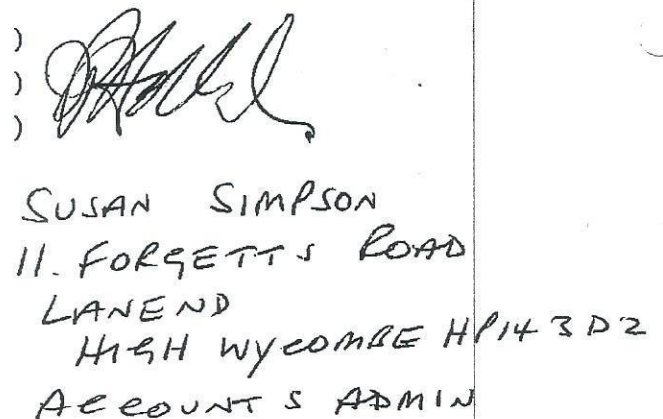 )
)
)
SUSAN SIMPSON
11. FORGETTS ROAD
LANEND
HIGH WYCOMBE HP14 3D2
ACCOUNTS ADMIN